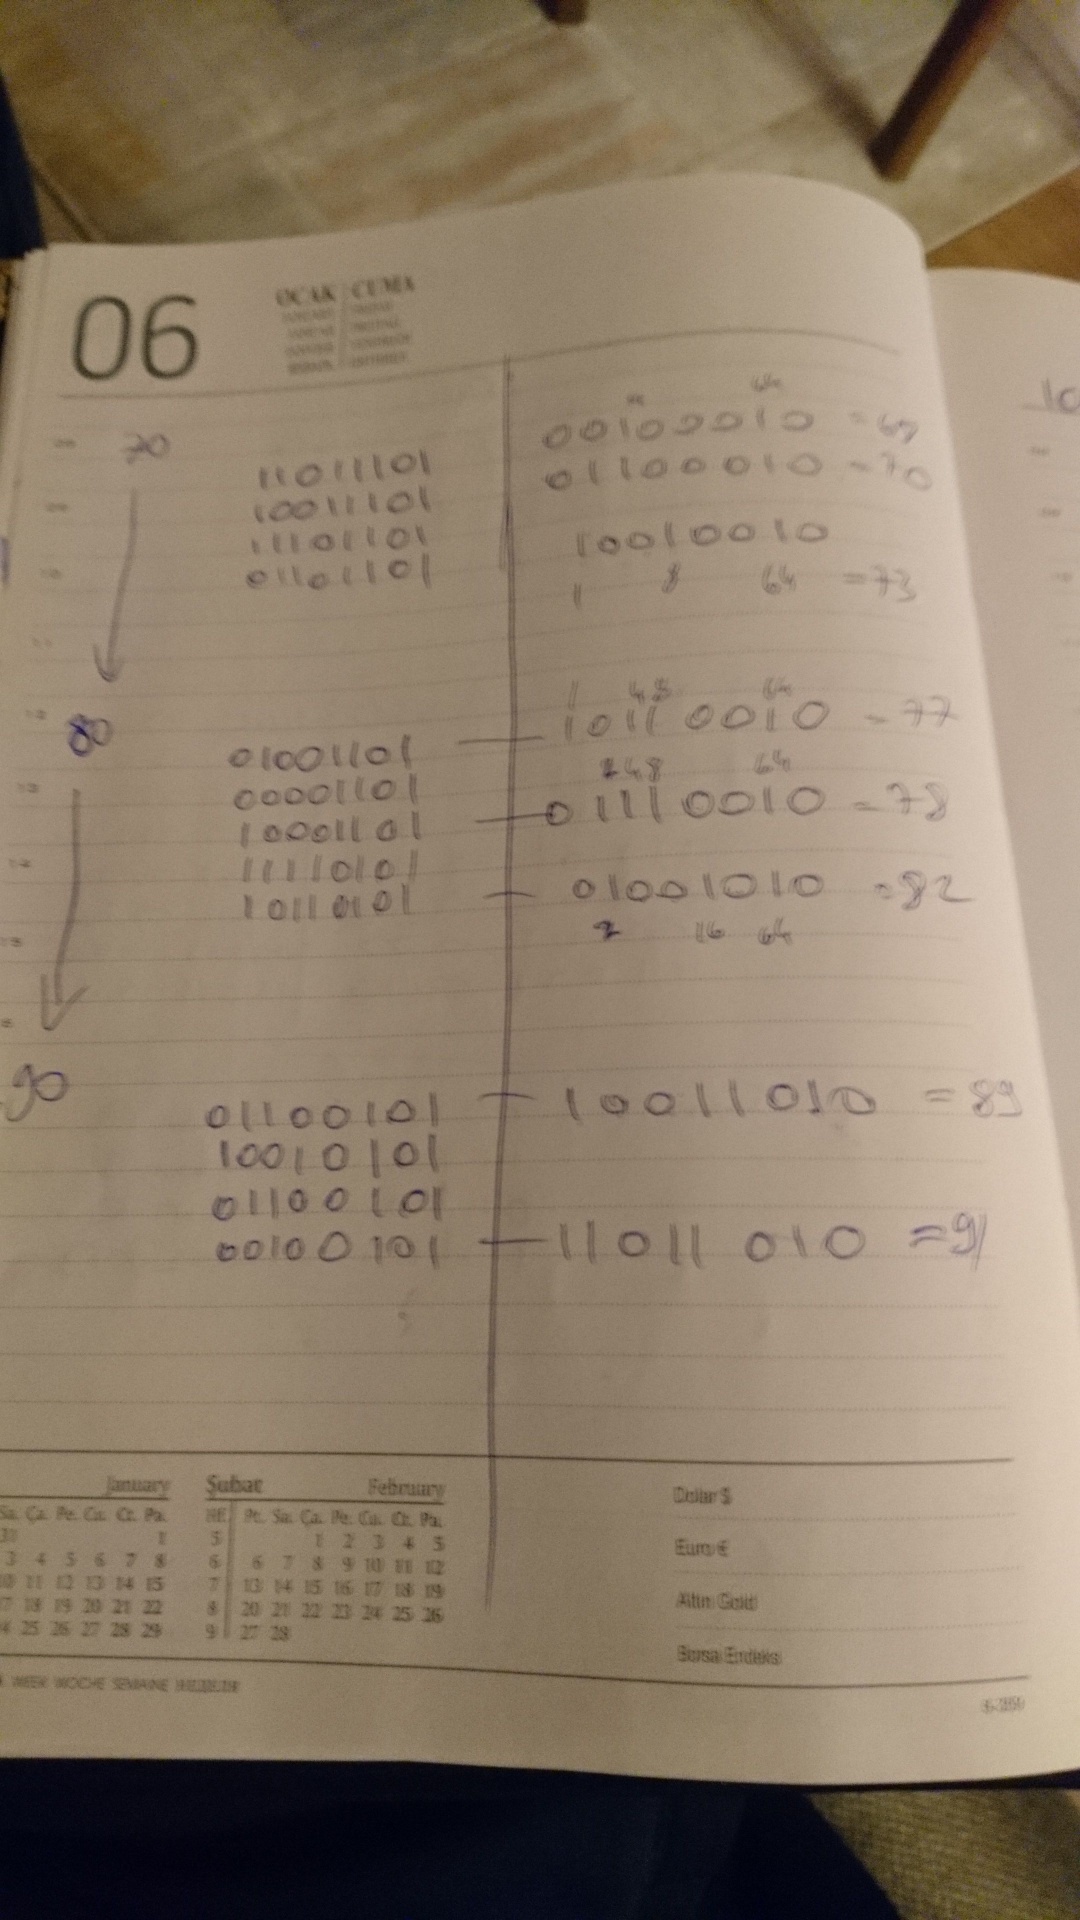 06
OCAK CUMA
70
11011101
10011101
11101101
01101101
64
00100010 = 69
01100010 = 70
10010010
1 8 64 = 73
80
01001101
00001101
10001101
11110101
10110101
1 48 64
10110010 = 77
2 4 8 64
01110010 = 78
01001010 = 82
2 16 64
90
01100101
10010101
01100101
00100101
10011010 = 89
11011010 = 91
10
January
Sa. Ça. Pe. Cu. Ct. Pa.
1
3 4 5 6 7 8
10 11 12 13 14 15
17 18 19 20 21 22
24 25 26 27 28 29
Şubat February
HE Pt. Sa. Ça. Pe. Cu. Ct. Pa.
5 1 2 3 4 5
6 6 7 8 9 10 11 12
7 13 14 15 16 17 18 19
8 20 21 22 23 24 25 26
9 27 28
Dolar $
Euro €
Altın Gold
Borsa Endeks
WEEK WOCHE SEMAINE